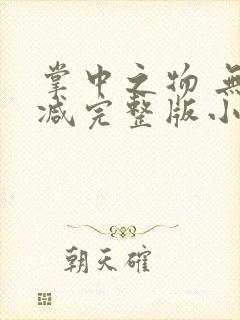 掌中之物 無
减完整版小
朝天確